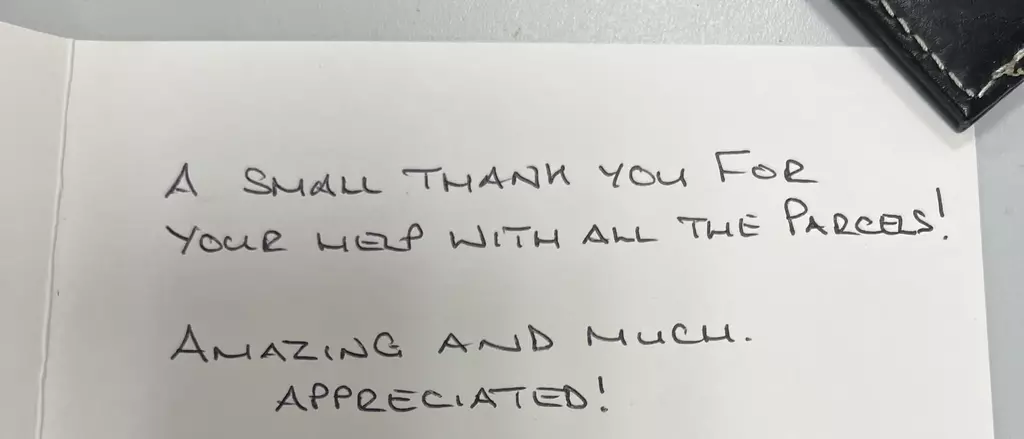 A SMALL THANK YOU FOR
YOUR HELP WITH ALL THE PARCELS!
AMAZING AND MUCH.
APPRECIATED!